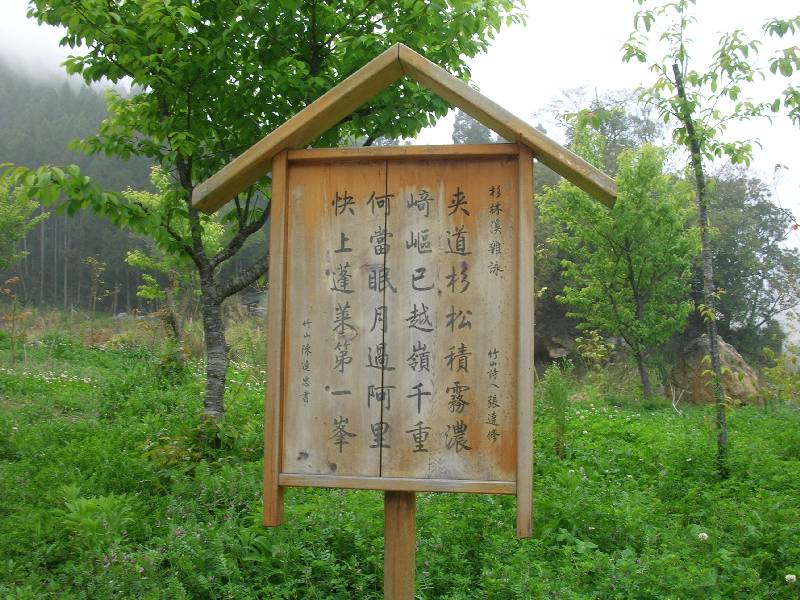 杉林溪雜詠 竹山詩人 張達修
夾道杉松積霧濃
崎嶇已越嶺千重
何當眠月過阿里
快上蓬萊第一峯
竹山 陳達忠書